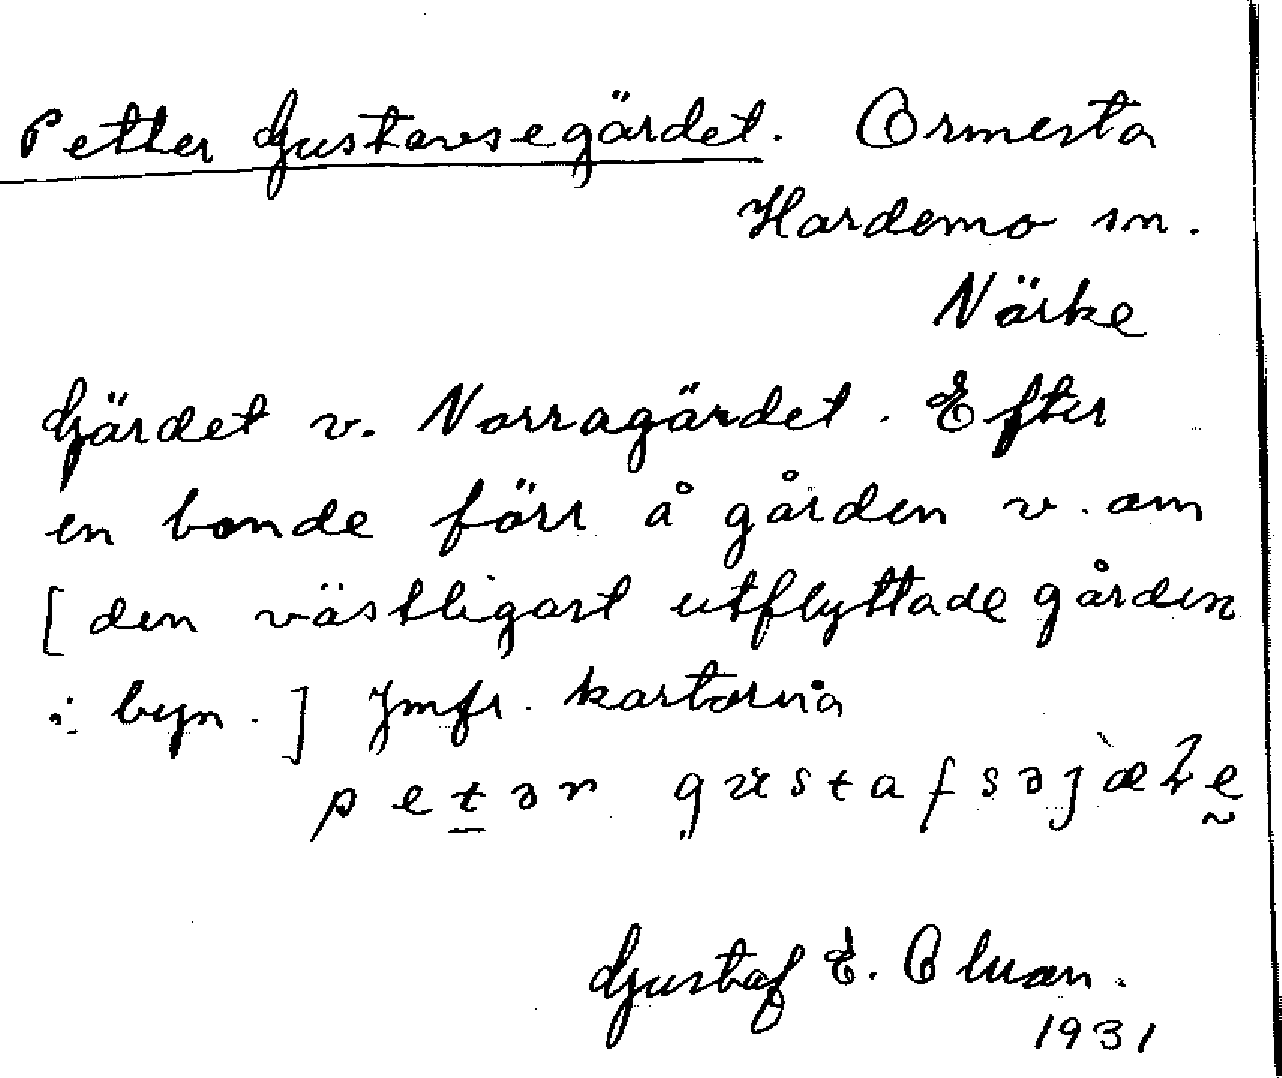 Petter Gustavsegärdet. Ormesta
Hardemo sn.
Närke
Gärdet v. Norragärdet. Efter
en bonde förr å gården v. om
[den västligast utflyttade gården
i byn.] Jmfr. kartorna
petər gustafsəjæɽe
Gustaf E. Olsson.
1931